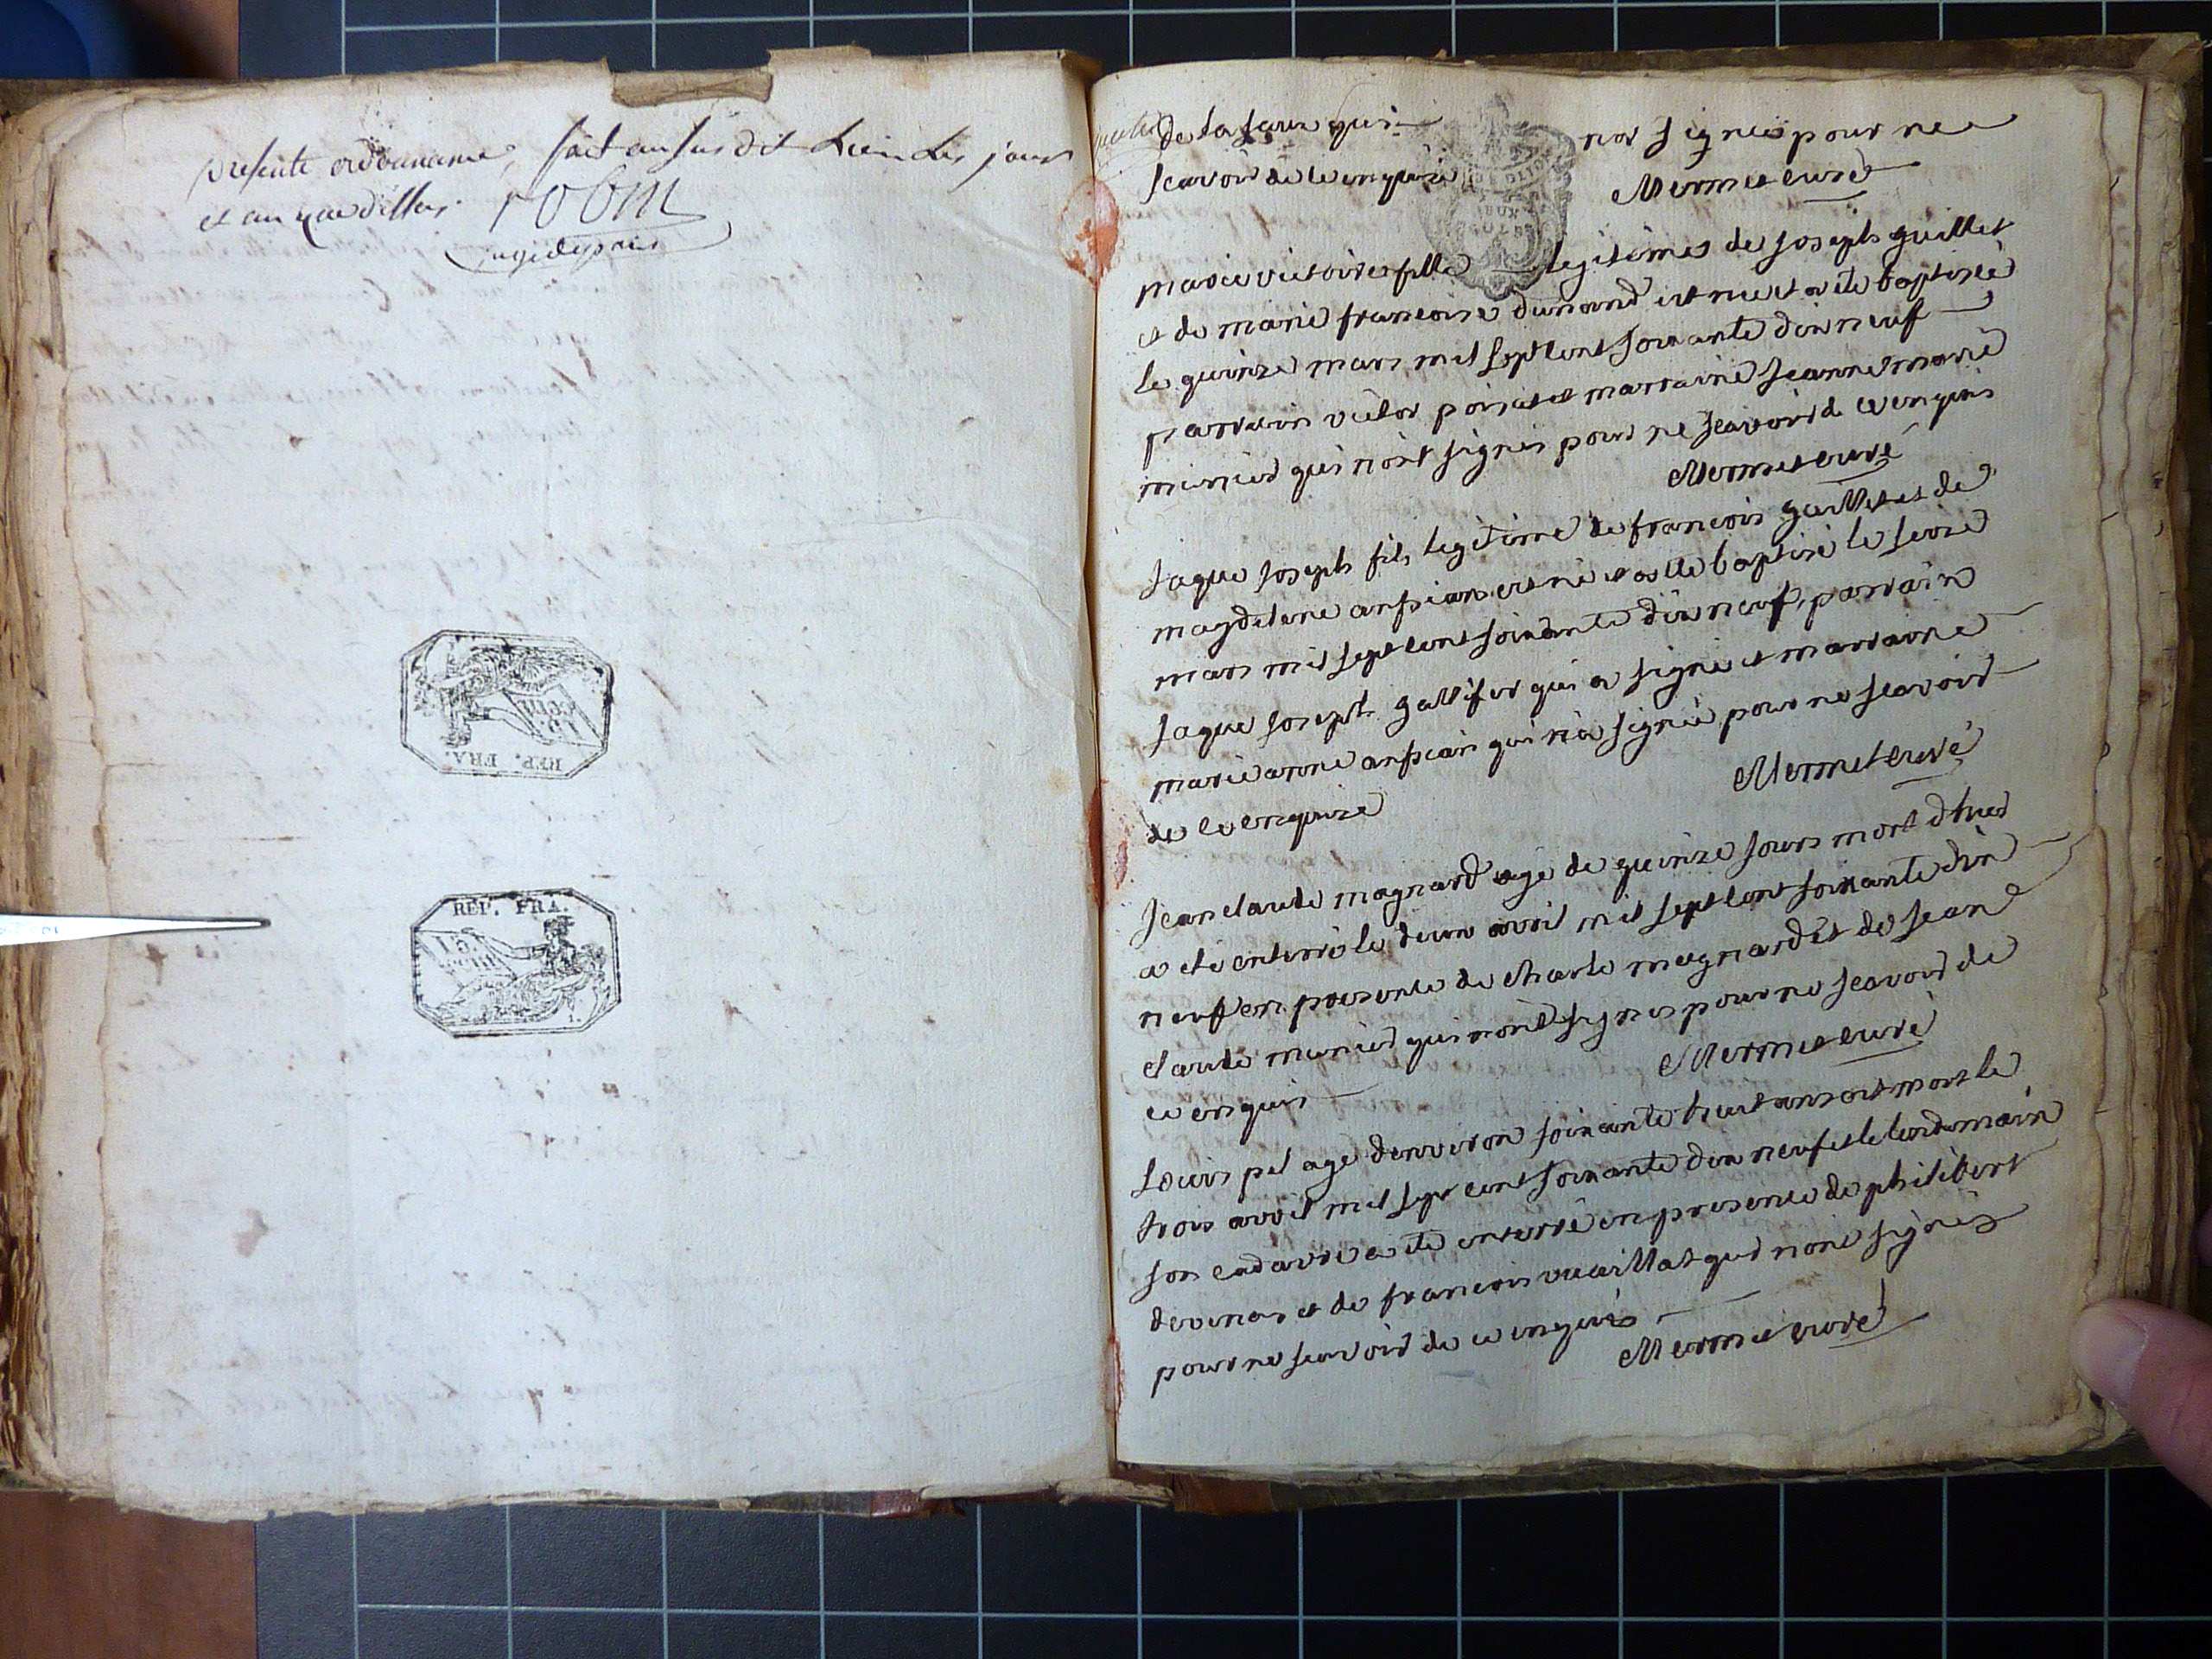 presente ordonnance, fait au susdit Lieu Les jour
et an que dessus.
juge de paix
REP. FRA.
15. cent.
REP. FRA.
15. cent.
de la faux qui nos signes pour ne
scavoir de ce enquire Mermet curé
marie victoire fille legitimes de joseph guillet
et de marie francoise dunand est nee et a ete baptisée
le quinze mars mil sept cent soixante dix neuf
parrain victor poinset marraine jeanne marie
munier qui n'ont signes pour ne scavoir de ce enquis
Mermet curé
jaque joseph fils legitime de francois guillet et de
magdelene anpian est né et a ete baptisé le seize
mars mil sept cent soixante dix neuf, parrain
jaque joseph gallifet qui a signé et marraine
marie anne anpian qui n'a signée pour ne scavoir
de ce enquise Mermet curé
jean claude magnard age de quinze jours mort d'hier
a ete enterré le deux avril mil sept cent soixante dix
neuf en presence de charle magnard et de jean
claude munier qui n'ont signes pour ne scavoir de
ce enquis Mermet curé
Louis pel age d'environ soixante huit ans est mort le
trois avril mil sept cent soixante dix neuf et le lendemain
son cadavre a ete enterré en presence de philibert
devenas et de francois vuillat qui n'ont signés
pour ne scavoir de ce enquis Mermet curé